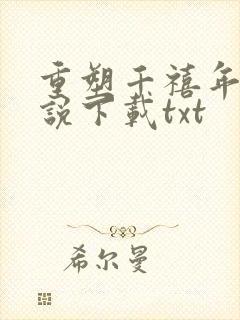 重塑千禧年
說下載txt
希尔曼